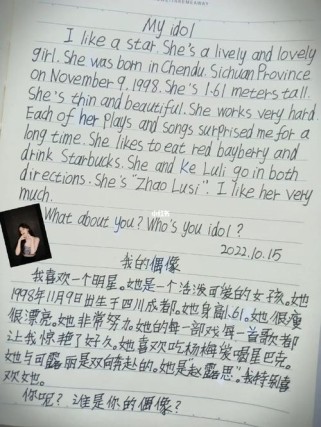 My idol
I like a star. She's a lively and lovely
girl. She was born in Chendu. Sichuan Province
on November 9. 1998. She's 1.61 meters tall.
She's thin and beautiful. She works very hard.
Each of her plays and songs surprised me for a
long time. She likes to eat red bayberry and
drink Starbucks. She and Ke Luli go in both
directions. She's "Zhao Lusi". I like her very
much.
What about you? Who's you idol?
2022.10.15
我的偶像
我喜欢一个明星。她是一个活泼可爱的女孩。她
1998年11月9日出生于四川成都。她身高1.61。她很瘦
很漂亮。她非常努力。她的每一部戏每一首歌都
让我惊艳了好久。她喜欢吃杨梅爱喝星巴克。
她与可露丽是双向奔赴的。她是"赵露思"。我特别喜
欢她。
你呢？谁是你的偶像？